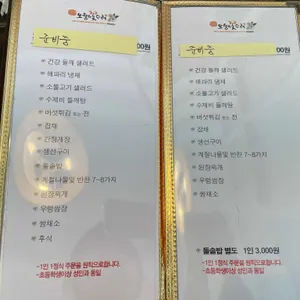 준비중
00원
건강 들깨 샐러드
해파리 냉채
소불고기 샐러드
수제비 들깨탕
버섯튀김 또는 전
잡채
간장게장
생선구이
돌솥밥
계절나물및 반찬 7~8가지
된장찌개
우렁쌈장
쌈채소
후식
-1인 1정식 주문을 원칙으로합니다.
-초등학생이상 성인과 동일
준비중
00원
건강 들깨 샐러드
해파리 냉채
소불고기 샐러드
수제비 들깨탕
버섯튀김 또는 전
잡채
생선구이
계절나물및 반찬 7~8가지
된장찌개
우렁쌈장
쌈채소
돌솥밥 별도 1인 3,000원
-1인 1정식 주문을 원칙으로합니다.
-초등학생이상 성인과 동일